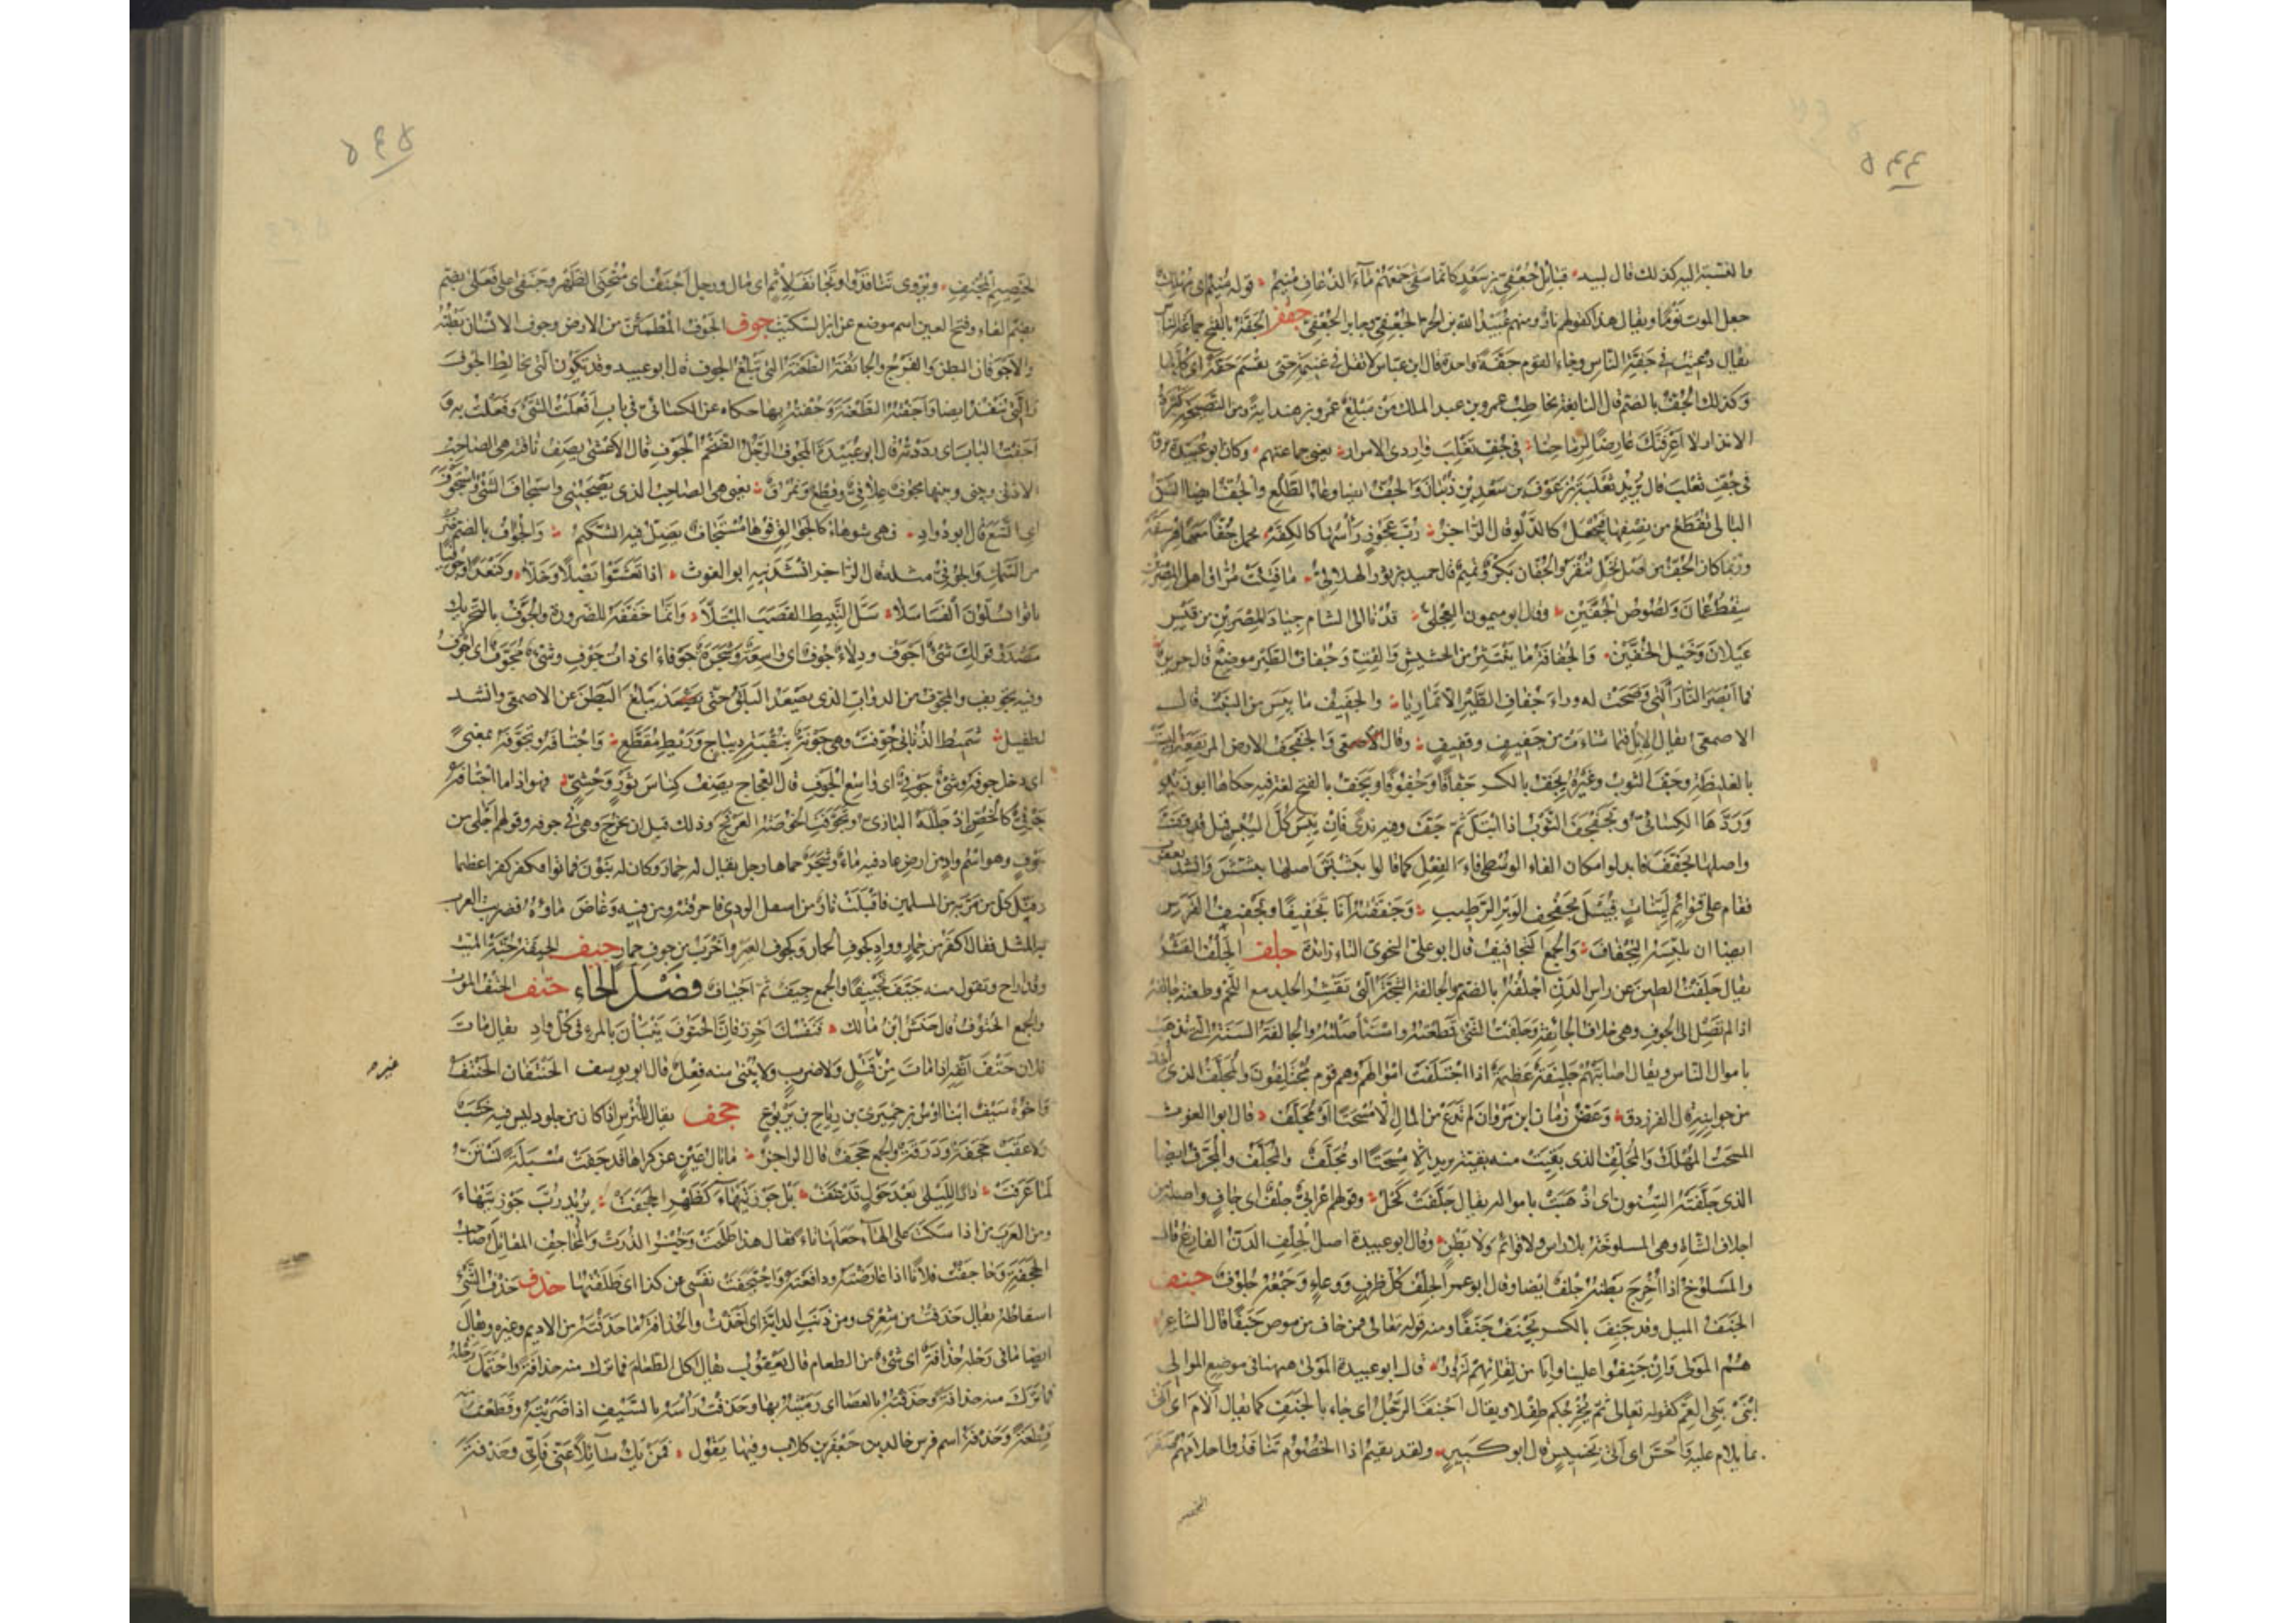 ٥٤٤
والنسبة اليه كذلك قال لبيد قبائل جعفى بن سعد كانما سقى جمعهم ماء الذعاف منيم قوله منيم اى مهلك
جعل الموت نوما ويقال هذا كقولهم ثار ومنهم عبيد الله بن الحر الجعفى وجابر الجعفى جفف الجفة بالفتح جماعة الناس
يقال دعيت فى جفة الناس وجاء القوم جفة واحدة قال ابن عباس لا نفل فى غنيمة حتى تقسم جفة اى كلها
وكذلك الجف بالضم قال النابغة يخاطب عمرو بن عبد الملك من مبلغ عمرو بن هند اية ومن النصيحة كثرة
الانذار لا اعرفنك عارضا لرماحنا فى جف تغلب واردى الامرار يعنى جماعتهم وكان ابو عبيدة يرويه
فى جف ثعلب قال يريد ثعلبة بن عوف بن سعد بن ذبيان والجف ايضا وعاء الطلع والجف ايضا الشن
البالى تقطع من نصفها فتجعل كالدلو قال الراجز رب عجوز راسها كالكفه تحمل جفا معها هرشفه
وربما كان الجف من اصل نخل ينقر والجفان بكر وتميم قال حميد بن ثور الهلالى ما فتئت مراق اهل المصرين
سقط عمان ولصوص الجفين وقال ابو ميمون العجلى قدنا الى الشام جياد المصرين من قيس
عيلان وخيل الجفين والجفافة ما ينتثر من الحشيش والقت وجفاف الطير موضع قال جرير
فما ابصر النار التى وضحت له وراء جفاف الطير الا تماريا والجفيف ما يبس من النبت قال
الاصمعى يقال الابل فيما شاءت من جفيف وقفيف وقال الاصمعى والجفجف الارض المرتفعة ليست
بالغليظة وجف الثوب وغيره يجف بالكسر جفافا وجفوفا ويجف بالفتح لغة فيه حكاها ابو زيد
وردها الكسائى وتجفجف الثوب اذا ابتل ثم جف وفيه ندى فان يبس كل اليبس قيل قد قف
واصلها تجفف فابدلوا مكان الفاء الوسطى فاء الفعل كما قالوا تبشبش اصلها تبشش وانشد يعقوب
فقام على قوائم لينات قبيل تجفجف الوبر الرطيب وجففته انا تجفيفا وتجفيف الفرس
ايضا ان تلبسه التجفاف والجمع التجافيف قال ابو على النحوى التاء زائدة جلف الجلف القشر
يقال جلفت الطين عن راس الدن اجلفه بالضم والجالفة الشجة التى تقشر الجلد مع اللحم وطعنة جالفة
اذا لم تصل الى الجوف وهى خلاف الجائفة وجلفت الشئ قطعته واستاصلته والجالفة السنة التى تذهب
باموال الناس ويقال اصابتهم جليفة عظيمة اذا اجتلفت اموالهم وهم قوم مجتلفون والمجلف الذى اخذ
من جوانبه قال الفرزدق وعض زمان يا ابن مروان لم يدع من المال الا مسحتا او مجلف قال ابو الغوث
المسحت المهلك والمجلف الذى بقيت منه بقية يريد الا مسحتا او مجلف والمجلف والمجرف ايضا
الذى جلفته السنون اى اذهبت باموله يقال جلفت كحل وقولهم اعرابى جلف اى جاف واصله من
اجلاف الشاة وهى المسلوخة بلا راس ولا قوائم ولا بطن وقال ابو عبيدة اصل الجلف الدن الفارغ قال
والمسلوخ اذا اخرج بطنه جلف ايضا وقال ابو عمر الجلف كل ظرف ووعاء وجمعه جلوف جنف
الجنف الميل وقد جنف بالكسر يجنف جنفا ومنه قوله تعالى فمن خاف من موص جنفا قال الشاعر
هم المولى وان جنفوا علينا وانا من لقائهم لزور قال ابو عبيدة المولى ههنا فى موضع الموالى
اى بنى العم كقوله تعالى ثم يخرجكم طفلا ويقال اجنف الرجل اى جاء بالجنف كما يقال الام اى اتى
بما يلام عليه واخس اى اتى بخسيس قال ابو كبير ولقد نقيم اذا الخصوم تنافدوا احلامهم صعر
الخصيم
٥٤٥
الخصيم المجنف ويروى تناقدوا وتجانف لاثم اى مال ورجل اجنف اى منحنى الظهر وجنفى على فعلى بضم
بضم الفاء وفتح العين اسم موضع عن ابن السكيت جوف الجوف المطمئن من الارض وجوف الانسان بطنه
والاجوفان البطن والفرج والجائفة الطعنة التى تبلغ الجوف قال ابو عبيد وقد تكون التى تخالط الجوف
والتى تنفذ ايضا واجفته الطعنة وجفته بها حكاه عن الكسائى فى باب افعلت الشئ وفعلت به و
اجفت الباب اى رددته قال ابو عبيدة المجوف الرجل الضخم الجوف قال الاعشى يصف ناقته هى الصاحب
الادنى وبينى وبينها مجوف علافى وقطع ونمرق يعنى هى الصاحب الذى يصحبنى واستجاف الشئ واستجوف
اى اتسع قال ابو دواد فهى شوهاء كالجوالق فوها مستجاف يضل فيه الشكيم والجواف بالضم ضرب
من السمك والجوفى مثله قال الراجز انشدنيه ابو الغوث اذا تعشوا بصلا وخلا وكنعدا وجوفيا
باتوا يسلون الفسا سلا سل النبيط القصب المبتلا وانما خففه للضرورة والجوف بالتحريك
مصدر قولك شئ اجوف ودلاء جوف اى واسعة وشجرة جوفاء اى ذات جوف وشئ مجوف اى اجوف
وفيه تجويف والمجوف من الدواب الذى يصعد البلق حتى يبلغ البطن عن الاصمعى وانشد
لطفيل شميط الذنابى جوفت وهى جونة بنقبة ديباج وريط مقطع واجتافه وتجوفه بمعنى
اى دخل جوفه وشئ جوفى اى واسع الجوف قال العجاج يصف كناس ثور وحشى فهو اذا ما اجتافه
جوفى كالخص اذ جلله البارى وتجوفت الخوصة العرفج وذلك قبل ان تخرج وهى فى جوفه وقولهم اخلى من
جوف وهو اسم واد من ارض عاد فيه ماء وشجر حماها رجل يقال له حمار وكان له بنون فماتوا فكفر كفرا عظيما
وقتل كل من مر به من المسلمين فاقبلت نار من اسفل الوادى فاحرقته ومن فيه وغاض ماؤه فضربت العرب
به المثل فقال اكفر من حمار وواد كجوف الحمار وكجوف العير واخرب من جوف حمار جيف الجيفة جثة الميت
وقد اراح وتقول منه جيف تجييفا والجمع جيف ثم اجياف فصل الحاء حتف الحتف الموت
والجمع الحتوف قال حنش ابن مالك فنفسك احرز فان الحتوف ينبان بالمرء فى كل واد يقال مات
فلان حتف انفه اذا مات من قتل ولا ضرب ولا يبنى منه فعل قال ابو يوسف الحنتفان الحنتف
غير
واخوه سيف ابنا اوس بن حميرى بن رياح بن يربوع حجف يقال للترس اذا كان من جلود ليس فيه خشب
ولا عقب حجفة ودرقة والجمع حجف قال الراجز ما بال عين عن كراها قد جفت مسبلة تستن
لما عرفت دارا لليلى بعد حول قد عفت بل جوز تيهاء كظهر الحجفت يريد رب جوز تيهاء
ومن العرب من اذا سكت على الهاء جعلها تاء فقال هذا طلحت وخبز الذرت والمحاجف المقاتل صاحب
الحجفة وحاجفت فلانا اذا عارضته ودافعته واحتجفت نفسى عن كذا اى ظلفتها حذف حذف الشئ
اسقاطه يقال حذفت من شعرى ومن ذنب الدابة اى اخذت والحذافة ما حذفته من الاديم وغيره ويقال
ايضا ما فى رحله حذافة اى شئ من الطعام قال يعقوب يقال اكل الطعام فما ترك منه حذافة واحتمل رحله
فما ترك منه حذافة وحذفته بالعصا اى رميته بها وحذفت راسه بالسيف اذا ضربته وقطعت منه
قطعة وحذفة اسم فرس خالد بن جعفر بن كلاب وفيها يقول فمن يك سائلا عنى فانى وحذفة